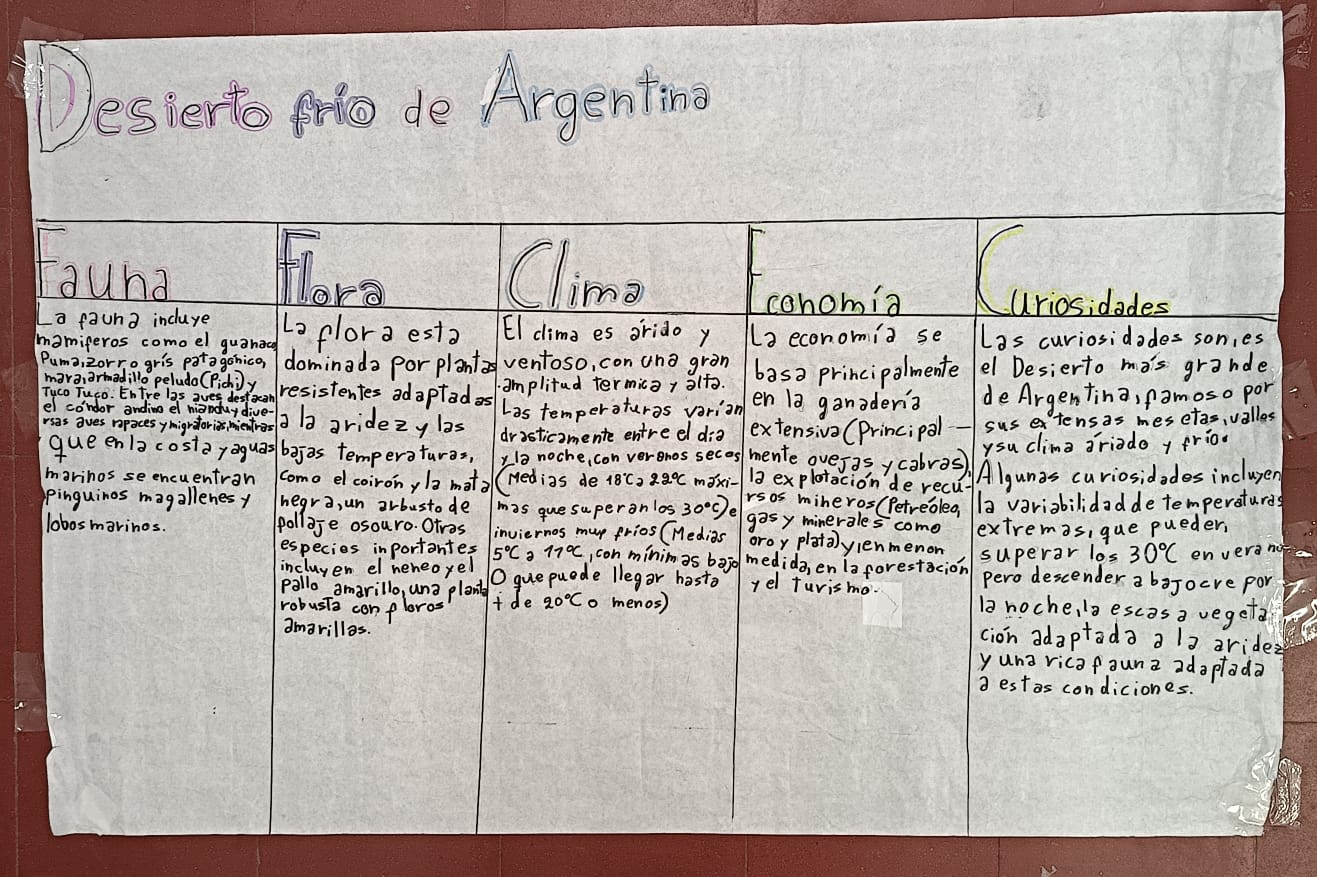 Desierto frío de Argentina
Fauna
La fauna incluye
mamiferos como el guanaco
Puma, zorro gris patagónico,
mara, armadillo peludo (Pichi) y
Tuco Tuco. Entre las aves destacan
el cóndor andino el niandu y dive-
rsas aves rapaces y migratorias, mientras
que en la costa y aguas
marinos se encuentran
Pinguinos magallenes y
lobos marinos.
Flora
La flora esta
dominada por plantas
resistentes adaptadas
a la aridez y las
bajas temperaturas,
como el coirón y la mata
negra, un arbusto de
pollaje osouro. Otras
especies inportantes
incluyen el neneo y el
Pallo amarillo, una planta
robusta con floros
amarillas.
Clima
El clima es árido y
ventoso, con una gran
amplitud termica y alta.
Las temperaturas varían
drásticamente entre el día
y la noche, con veronos secos
(Medias de 18°C a 22°C máxi-
mas que superan los 30°C) e
inviernos muy fríos (Medias
5°C a 11°C, con mínimas bajo
O que puede llegar hasta
+ de 20°C o menos)
Economía
La economía se
basa principalmente
en la ganadería
extensiva (Principal-
mente ovejas y cabras),
la explotación de recu-
rsos mineros (Petreóleo,
gas y minerales como
oro y plata) y, en menon
medida, en la forestación
y el turismo.
Curiosidades
Las curiosidades son, es
el Desierto más grande
de Argentina, famoso por
sus extensas mesetas, valles
y su clima áriado y frío.
Algunas curiosidades incluyen
la variabilidad de temperaturas
extremas, que pueden
superar los 30°C en verano
Pero descender a bajocre por
la noche, la escasa vegeta
ción adaptada a la aridez
y una rica fauna adaptada
a estas condiciones.